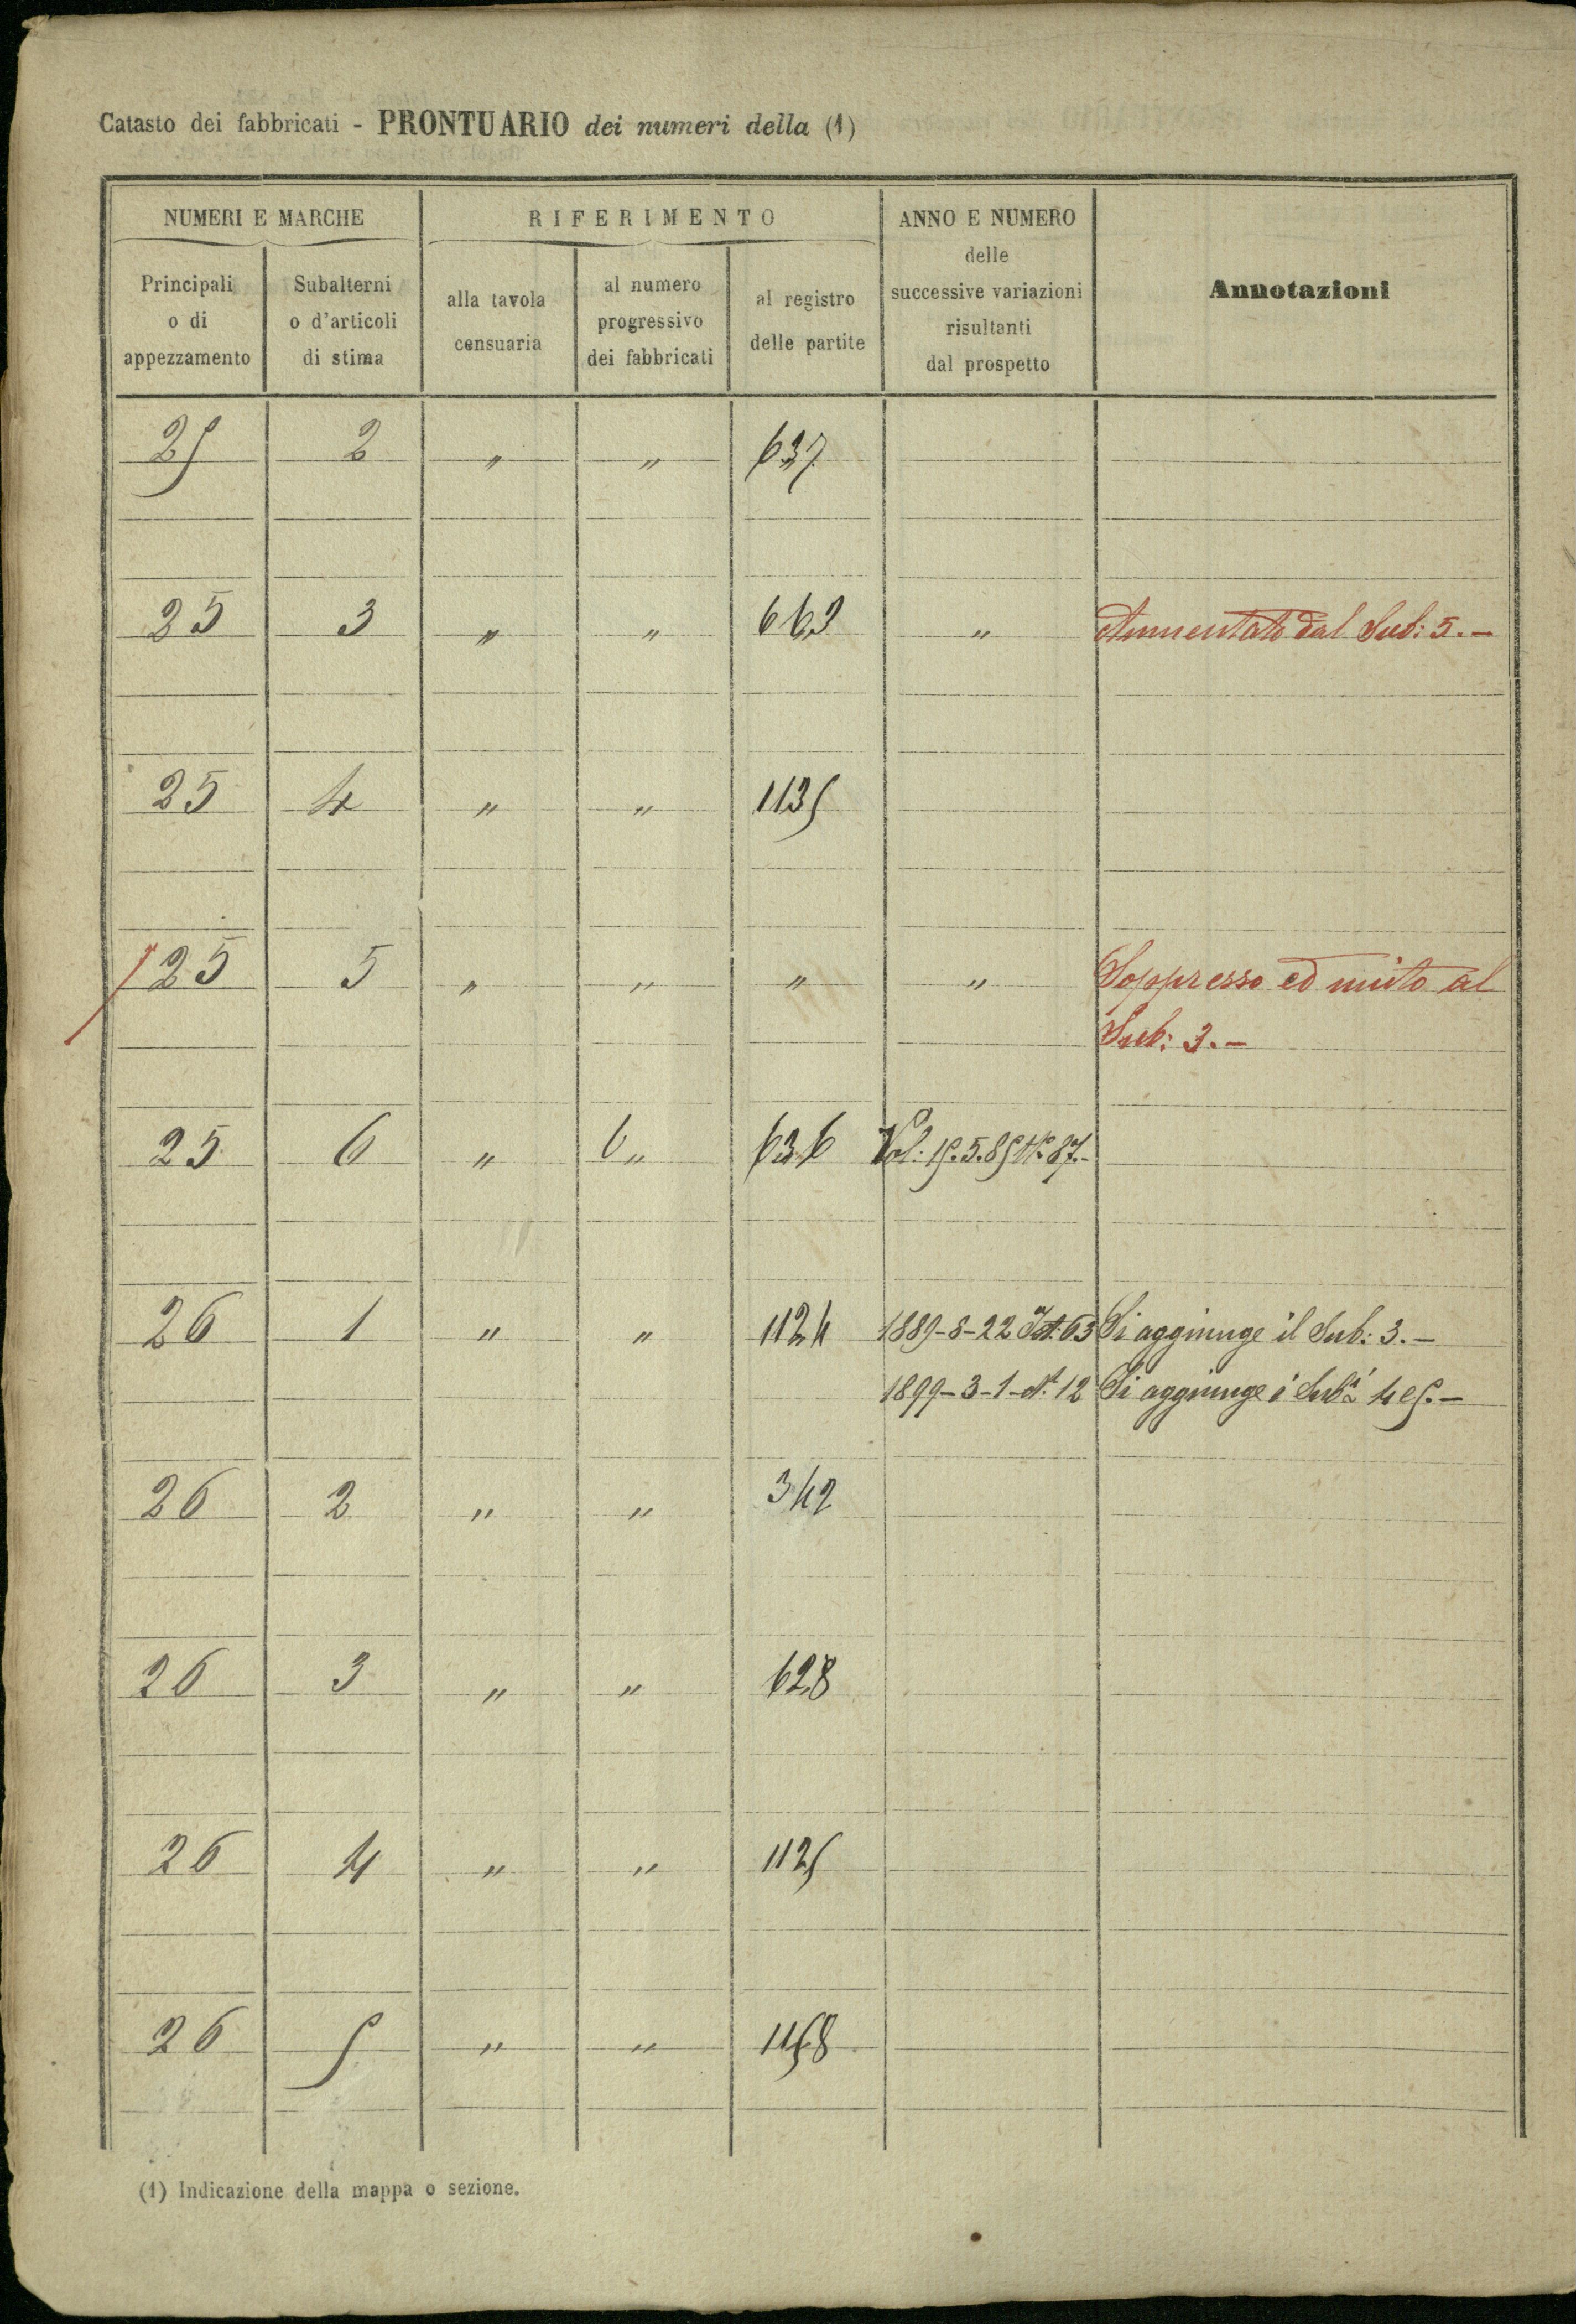 Catasto dei fabbricati - PRONTUARIO dei numeri della (1)
NUMERI E MARCHE
RIFERIMENTO
ANNO E NUMERO
delle
successive variazioni
risultanti
dal prospetto
Annotazioni
Principali
o di
appezzamento
Subalterni
o d'articoli
di stima
alla tavola
censuaria
al numero
progressivo
dei fabbricati
al registro
delle partite
25 2 " " 637
25 3 " " 663 " Aumentato dal Sub: 5.-
25 4 " " 1135
25 5 " " " " Soppresso ed unito al
Sub: 3.-
25 6 " 6 " 636 Vol: 15.5.85 N° 87.-
26 1 " " 1124 1889-8-22 Ist. 63 Si aggiunge il Sub: 3.-
1899-3-1-N° 12 Si aggiunge i Sub.i 4 e 5.-
26 2 " " 342
26 3 " " 628
26 4 " " 1125
26 5 " " 1158
(1) Indicazione della mappa o sezione.